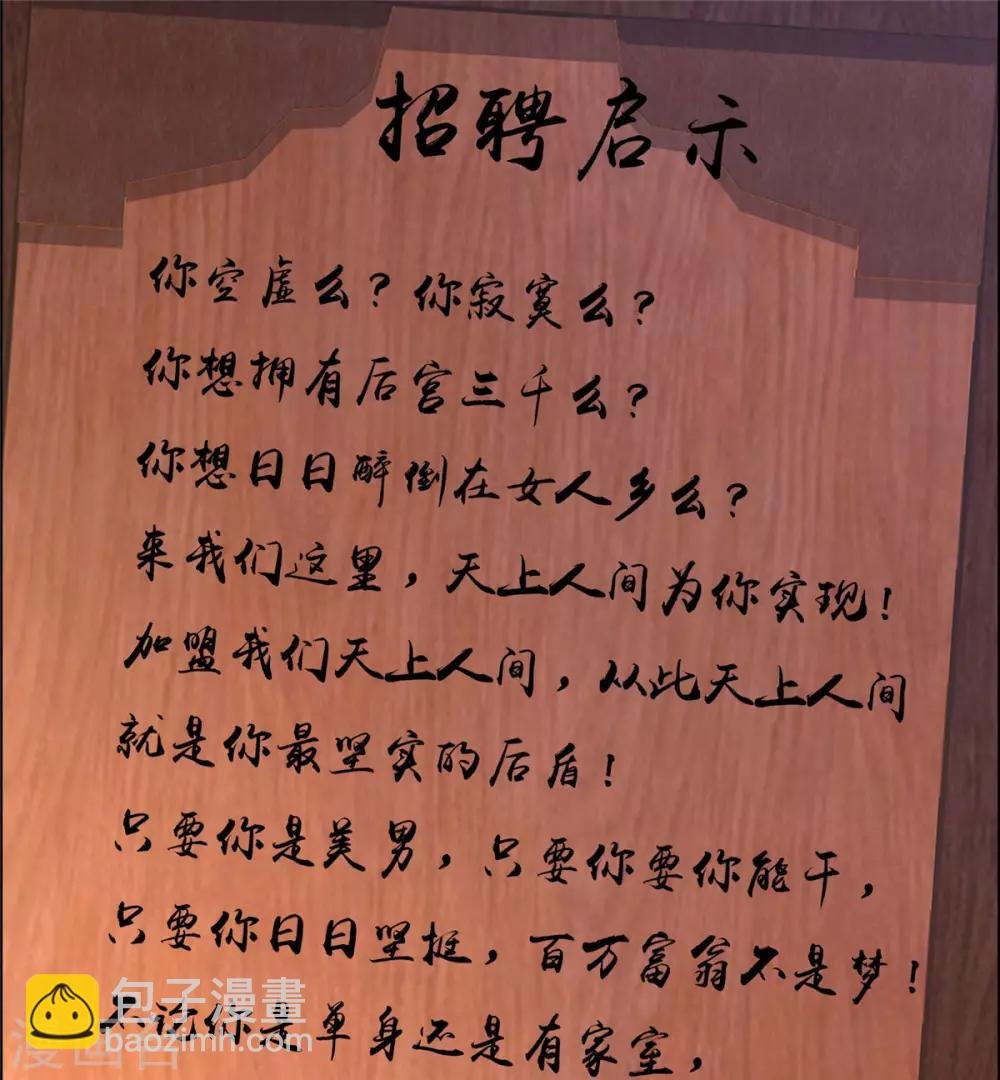 招聘启示
你空虚么？你寂寞么？
你想拥有后宫三千么？
你想日日醉倒在女人乡么？
来我们这里，天上人间为你实现！
加盟我们天上人间，从此天上人间
就是你最坚实的后盾！
只要你是美男，只要你要你能干，
只要你日日坚挺，百万富翁不是梦！
不说你是单身还是有家室，
包子漫畫
baozimh.com